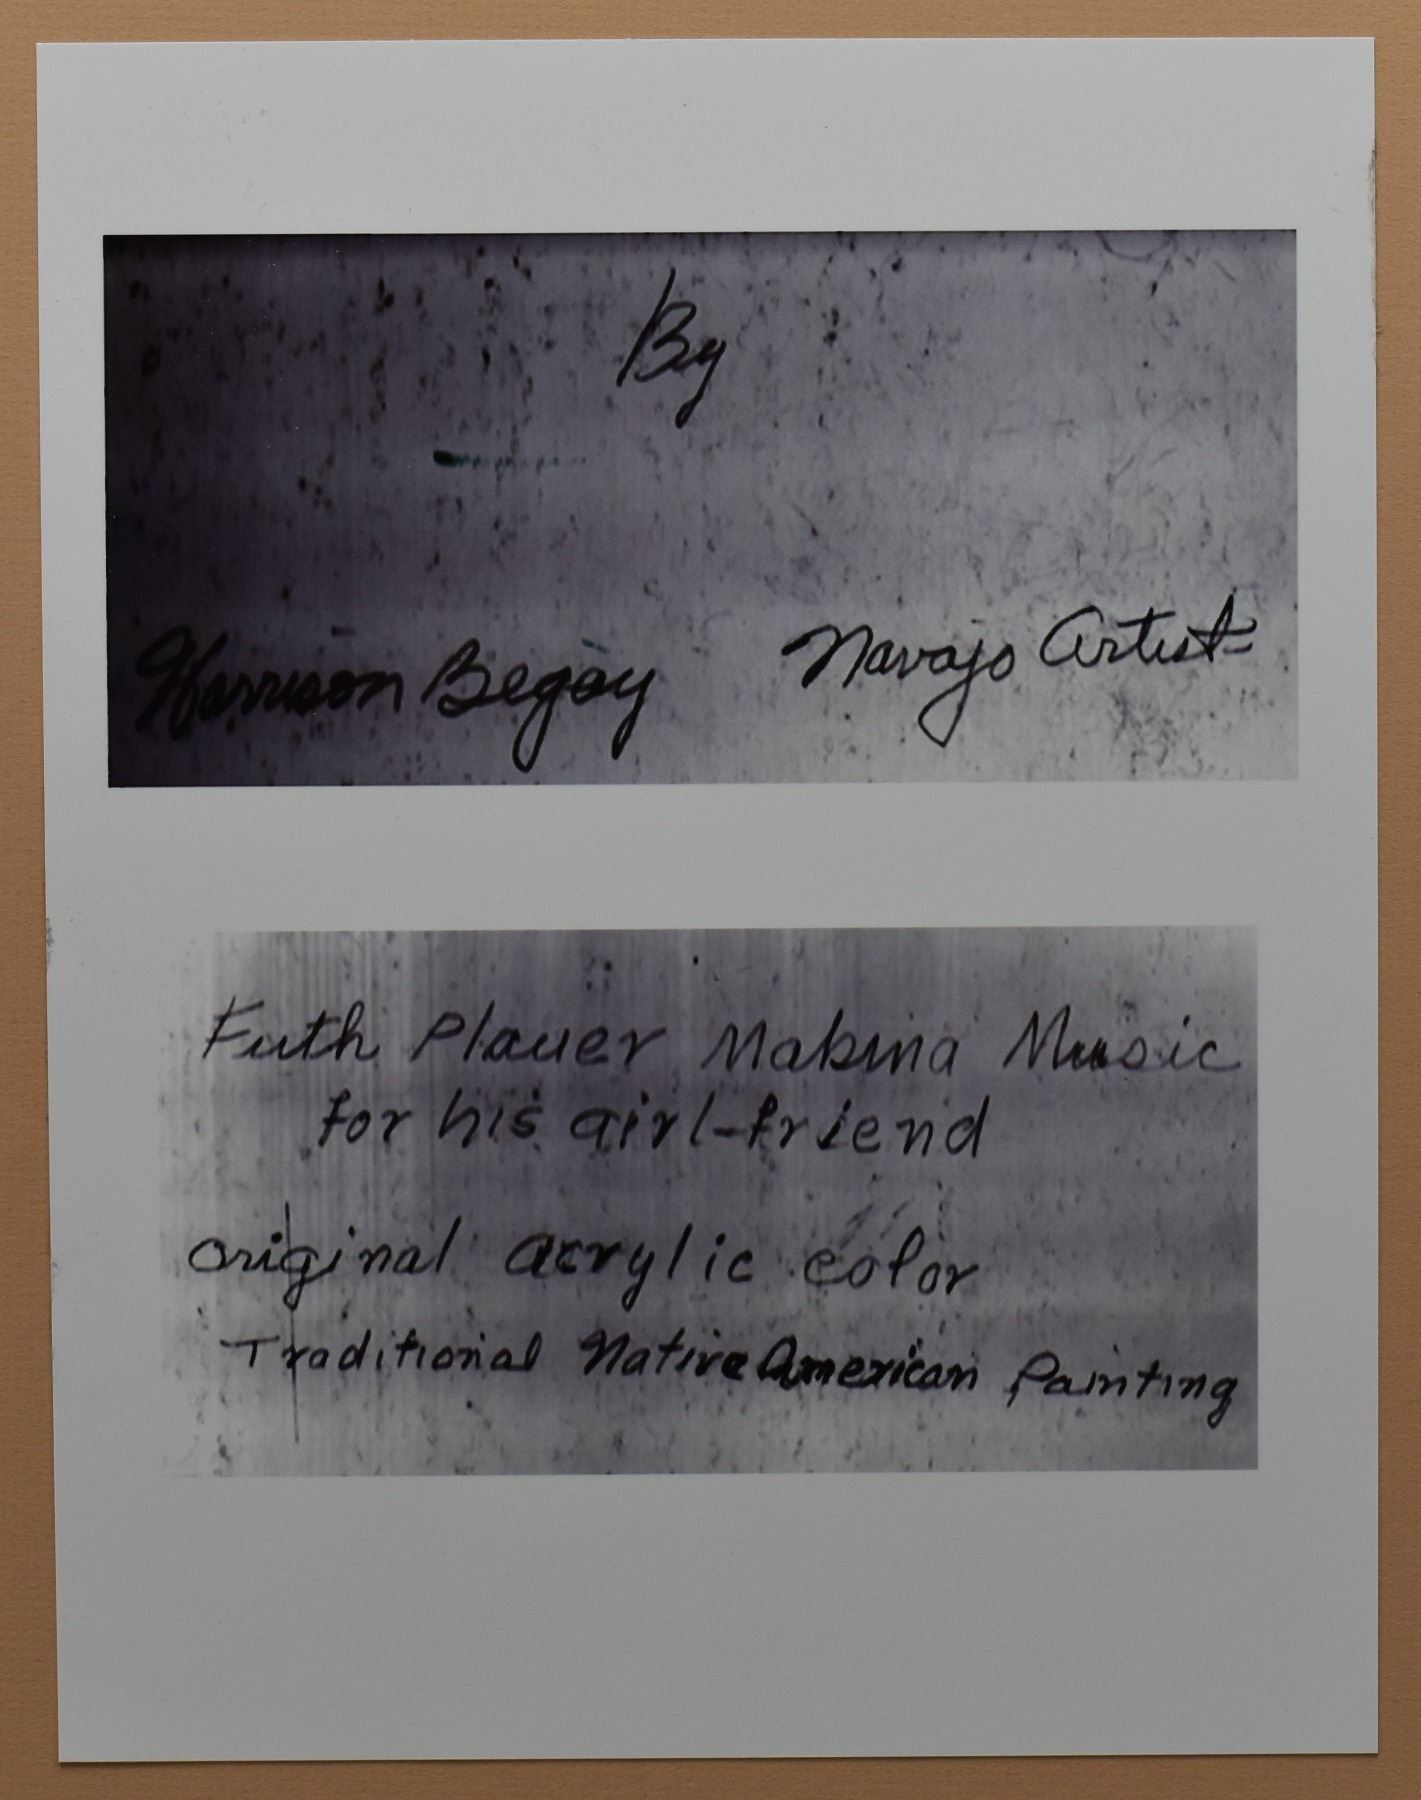 By
Harrison Begay Navajo Artist
Futh Plauer Making Music
for his girl-friend
original acrylic color
Traditional Native American Painting